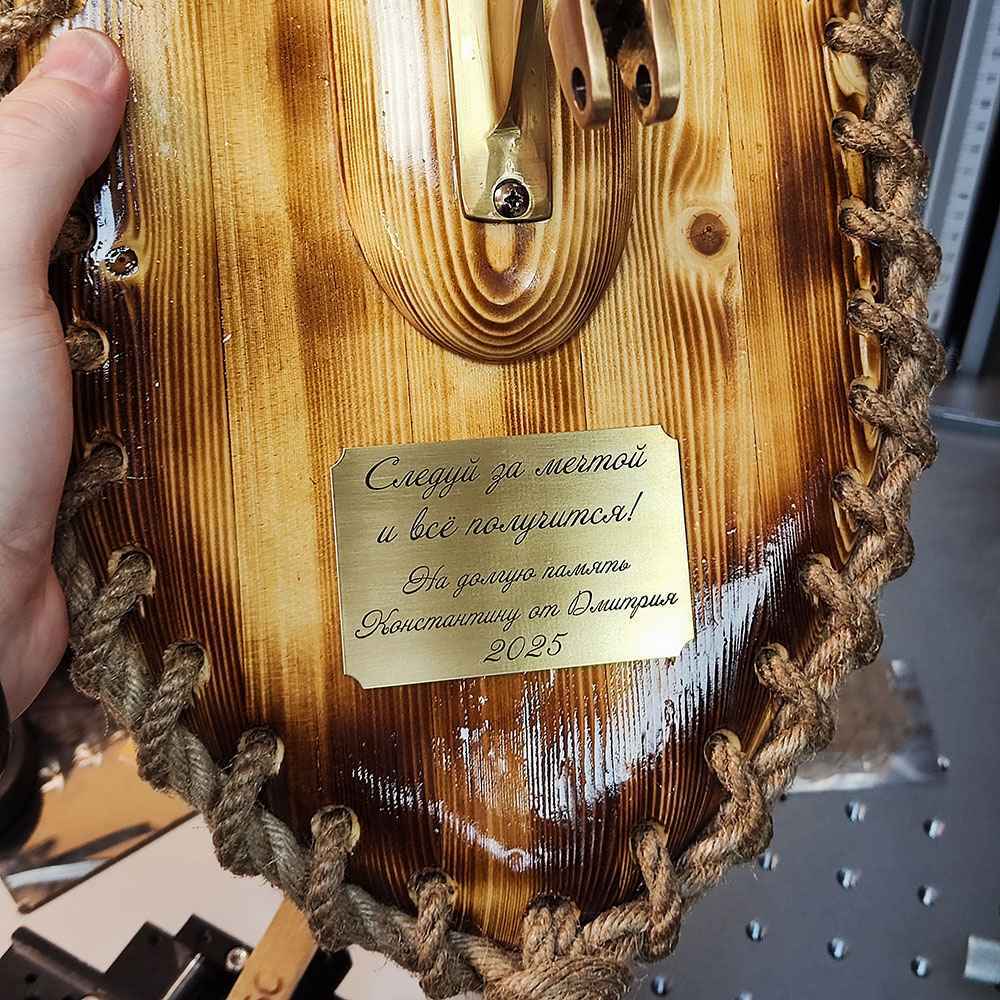 Следуй за мечтой
и всё получится!
На долгую память
Константину от Дмитрия
2025